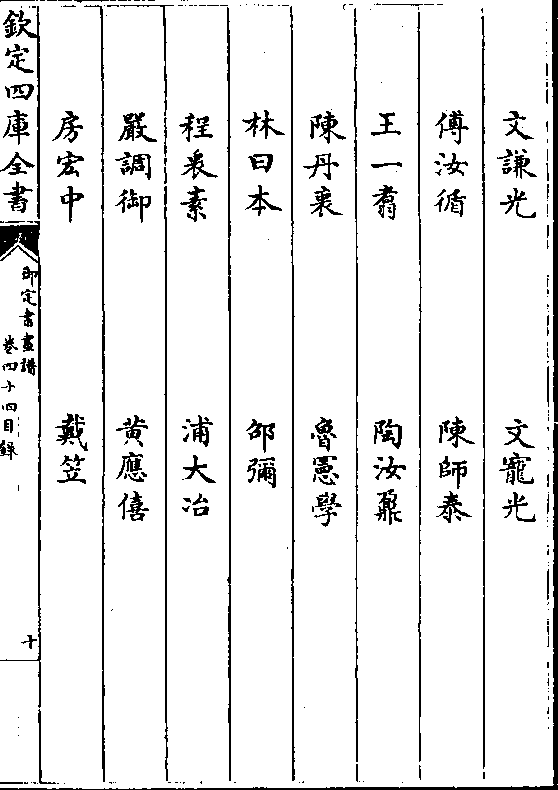 文謙光　文寵光
傅汝循　陳師泰
王一翥　陶汝鼐
陳丹衷　魯憲學
林日本　邵彌
程奚素　浦大冶
嚴調御　黄應僖
房宏中　戴笠
欽定四庫全書
御定書畫譜
卷四十四目錄
十